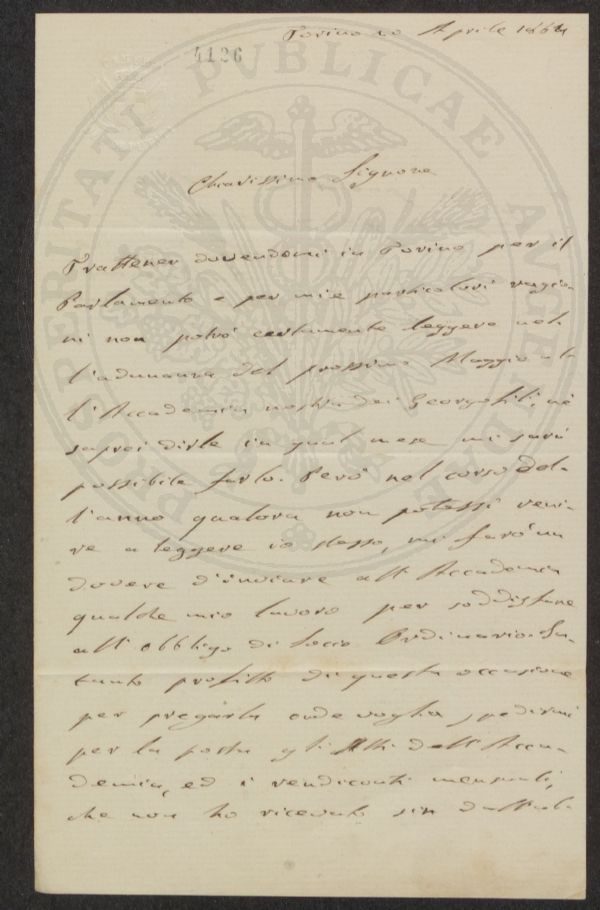 Torino 20 Aprile 1864
4126
PROSPERITATI PVBLICAE AVGENDAE
Chiarissimo Signore
Trattener dovendomi in Torino per il
Parlamento e per mie particolari ragio-
ni non potrò certamente leggere nel-
l'adunanza del prossimo Maggio al-
l'Accademia nostra dei Georgofili, nè
saprei dirle in qual mese mi sarà
possibile farlo. Però nel corso del-
l'anno qualora non potessi veni-
re a leggere io stesso, mi farò un
dovere d'inviare all'Accademia
qualche mio lavoro per soddisfare
all'obbligo di Socio Ordinario. In-
tanto profitto di questa occasione
per pregarla onde voglia spedirmi
per la posta gli Atti dell'Acca-
demia, ed i rendiconti mensuali,
che non ho ricevuto sin dall'al-